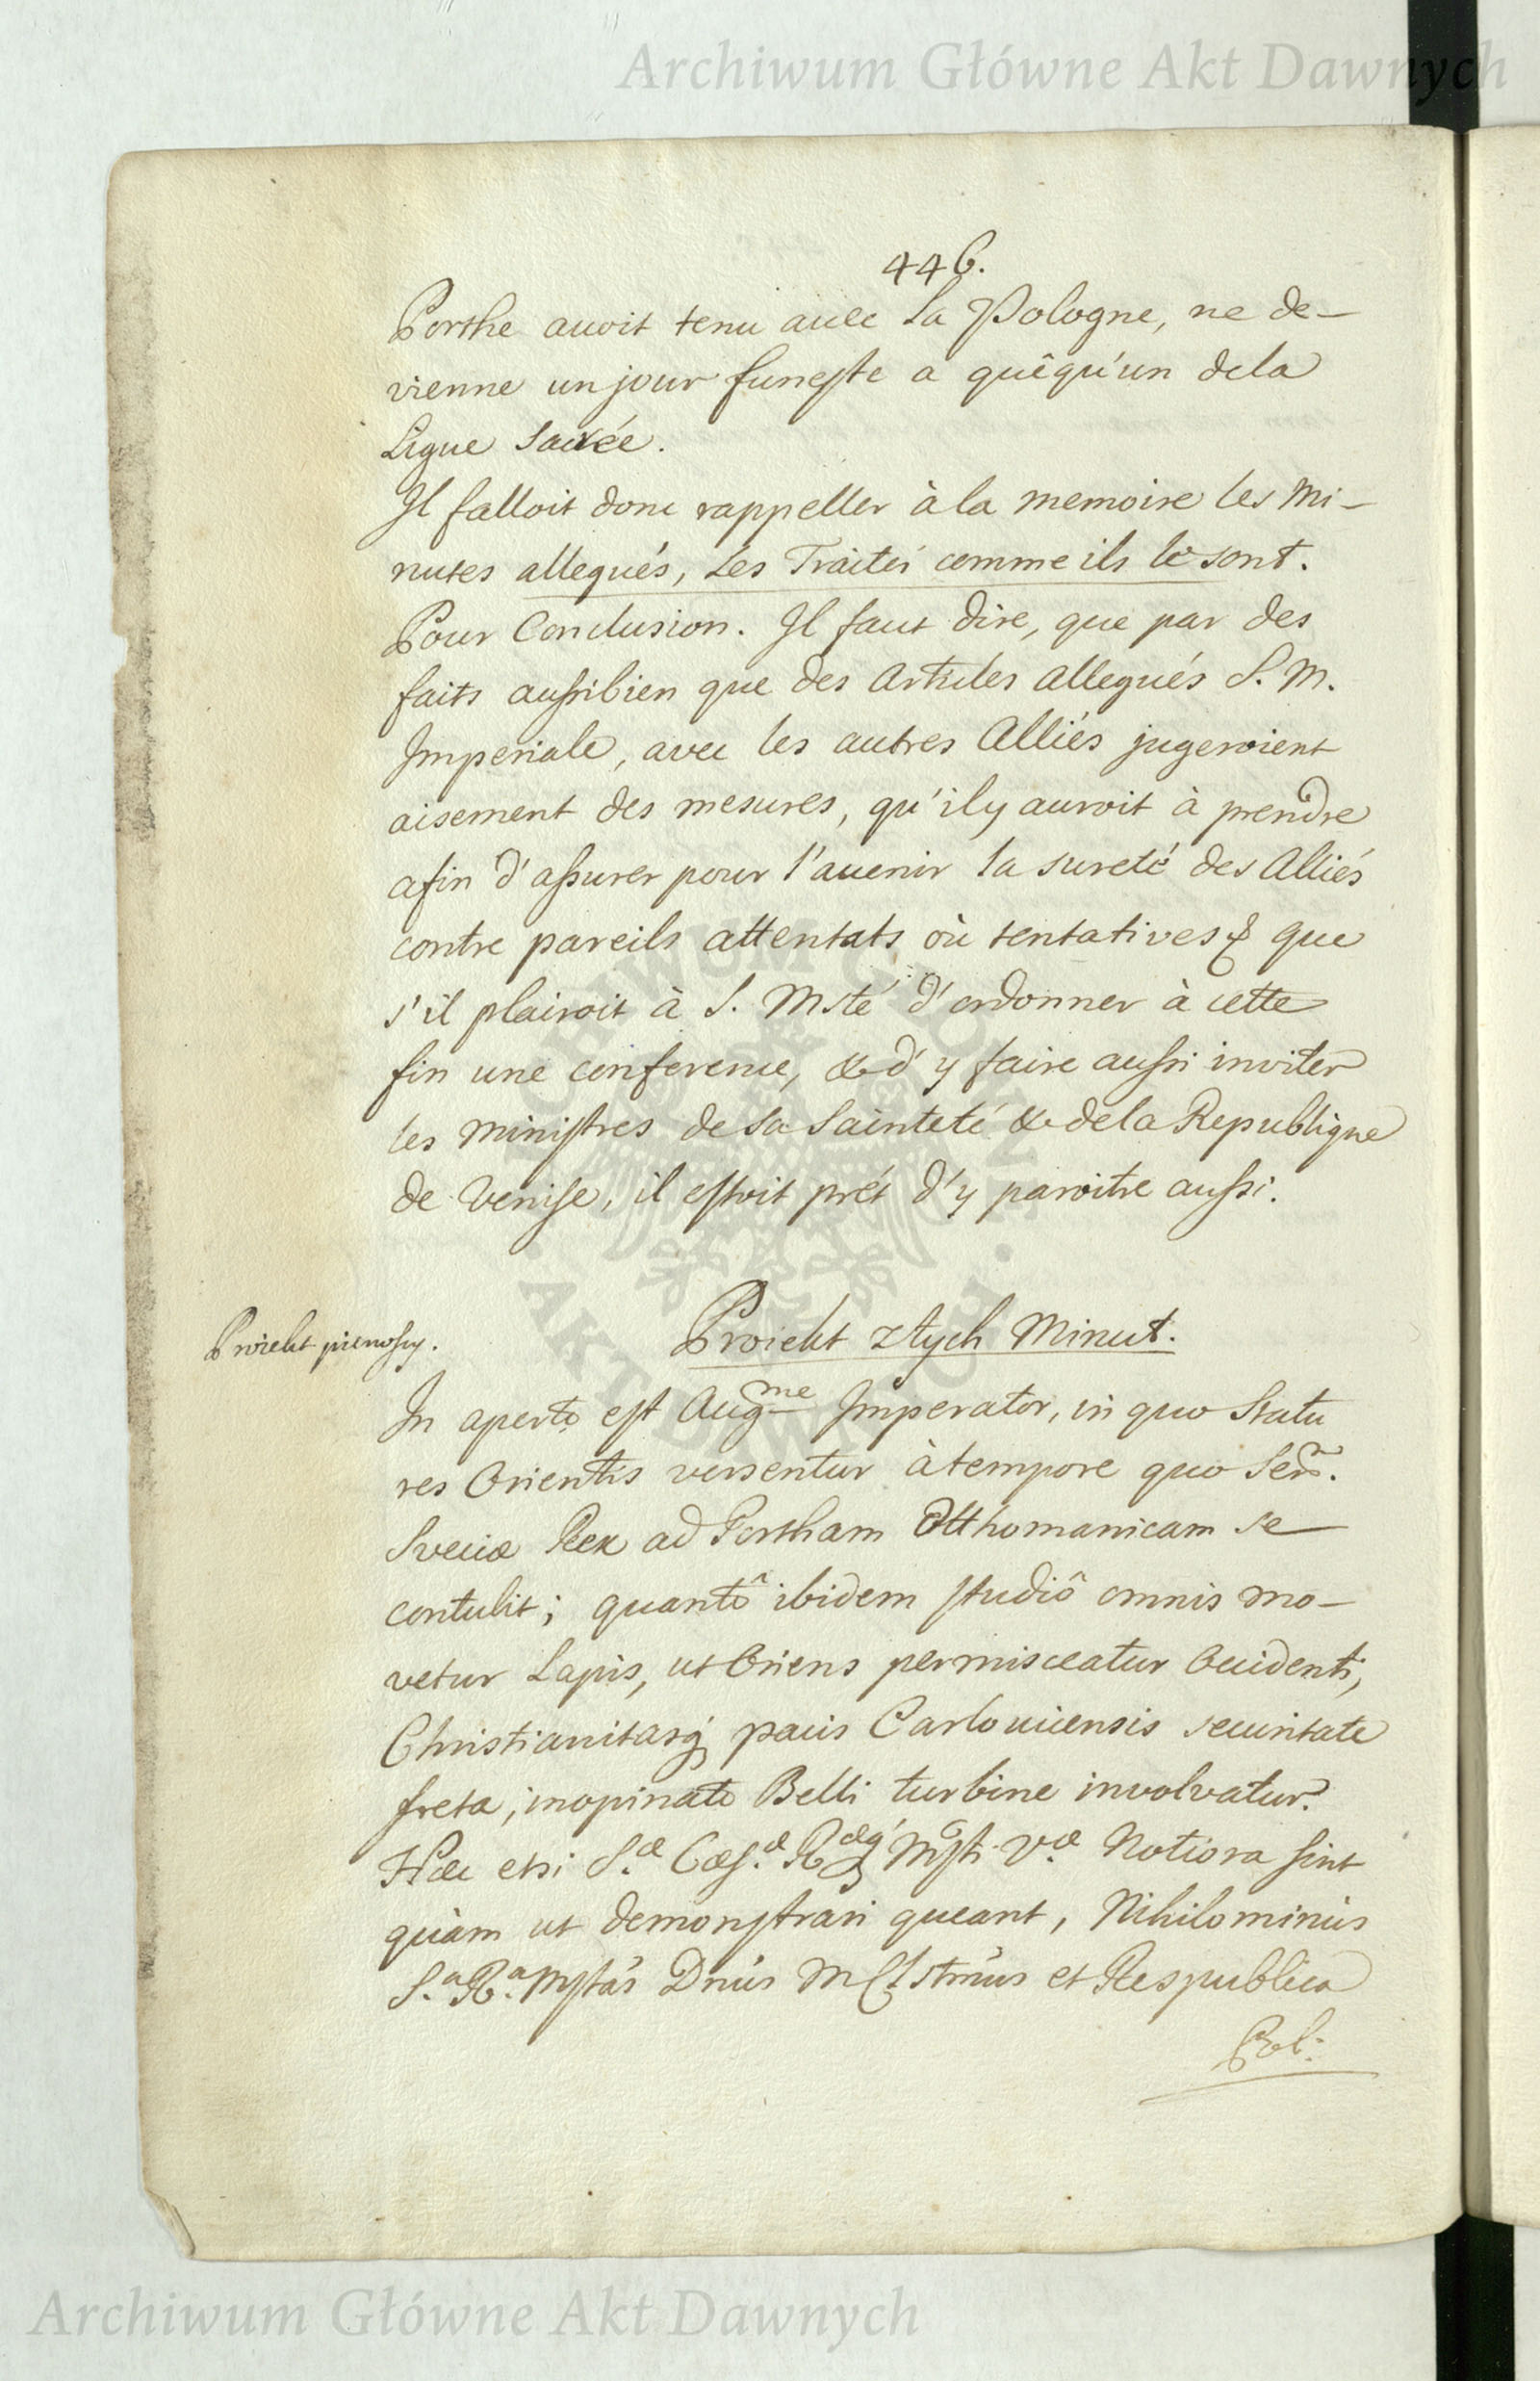 Archiwum Główne Akt Dawnych
446.
Porthe auoit tenu auec la Pologne, ne de-
vienne un jour funeste a quêqu'un dela
Ligue Sacrée.
Il falloit donc rappeller à la memoire les Mi-
nutes allegués, Les Traités comme ils le sont.
Pour Conclusion. Il faut dire, que par des
faits aussibien que des Articles allegués S. M.
Imperiale, avec les autres Alliés jugeroient
aisement des mesures, qu'il y auroit à prendre
afin d'assurer pour l'auenir la sureté des Alliés
contre pareils attentats où tentatives & que
s'il plairoit à S. Msté d'ordonner à cette
fin une conference, & d'y faire aussi inviter
les Ministres de Sa Sainteté & dela Republique
de Venise, il estoit prét d'y paroitre aussi.
Proiekt pienoszy.
Proiekt z tych Minut.
In aperto est Augme Imperator, in quo Statu
res Orientis versentur à tempore quo Serm.
Sveciæ Rex ad Portham Otthomanicam se
contulit; quantô ibidem studiô omnis mo-
vetur Lapis, ut Oriens permisceatur Occidenti,
Christianitasq pacis Carloviciensis securitate
freta, inopinato Belli turbine involvatur.
Hæc etsi S.æ Cæs.æ Ræq Msti V.æ Notiora sint
quàm ut demonstrari queant, Nihilominùs
S.a R.a Mstas Dnus M Clstmus et Respublica
Pol:
ARCHIWUM GŁÓWNE
AKT DAWNYCH
Archiwum Główne Akt Dawnych